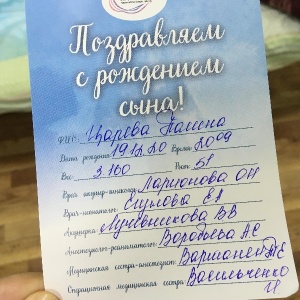 Поздравляем
с рождением
сына!
Ф.И.О. Царева Полина
Дата рождения 19.12.20 Время 2009
Вес 3 160 Рост 51
Врач акушер-гинеколог Ларионова ОН
Врач-неонатолог ЕА
Акушерка Лучевникова ВВ
Анестезиолог-реаниматолог Воробьева АС
Медицинская сестра-анестезист
Операционная медицинская сестра Васильченко